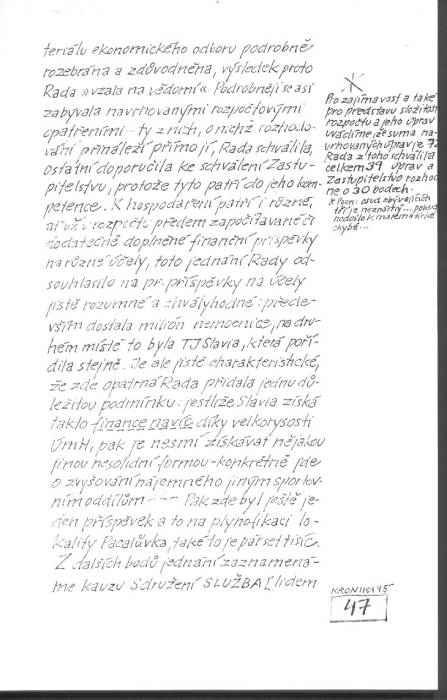 teriálu ekonomického odboru podrobně
rozebrána a zdůvodněna, výsledek proto
Rada »vzala na vědomí«. Podrobněji se asi
zabývala navrhovanými rozpočtovými
opatřeními – ty z nich, o nichž rozhodo-
vání přináleží přímo jí, Rada schválila,
ostatní doporučila ke schválení Zastu-
pitelstvu, protože tyto patří do jeho kom-
petence. K hospodaření patří i různé,
ať už v rozpočtu předem započítávané či
dodatečně doplněné finanční příspěvky
na různé účely, toto jednání Rady od-
souhlasilo na př. příspěvky na účely
jistě rozumné a chvályhodné: přede-
vším dostala milión nemocnice, na dru-
hém místě to byla TJ Slavia, která poří-
dila stejně. Je ale jistě charakteristické,
že zde opatrná Rada přidala jednu dů-
ležitou podmínku: jestliže Slavia získá
takto finance navíc díky velkorysosti
ÚmH, pak je nesmí získávat nějakou
jinou nesolidní formou – konkrétně jde
o zvyšování nájemného jiným sportov-
ním oddílům – – – Pak zde byl ještě je-
den příspěvek a to na plynofikaci lo-
kality Pacalůvka, také to je pár set tisíc.
Z dalších bodů jednání zaznamená-
me kauzu Sdružení SLUŽBA [ lidem
Pro zajímavost a také
pro představu složitosti
rozpočtu a jeho úprav
uvádíme, že suma na-
vrhovaných úprav je 72
Rada z toho schválila
celkem 39 úprav a
Zastupitelstvo rozhod-
ne o 30 bodech.
Pozn: osud zbývajících
tří je neznámý... pokud
nedošlo k matematické
chybě...
KRON110495
47